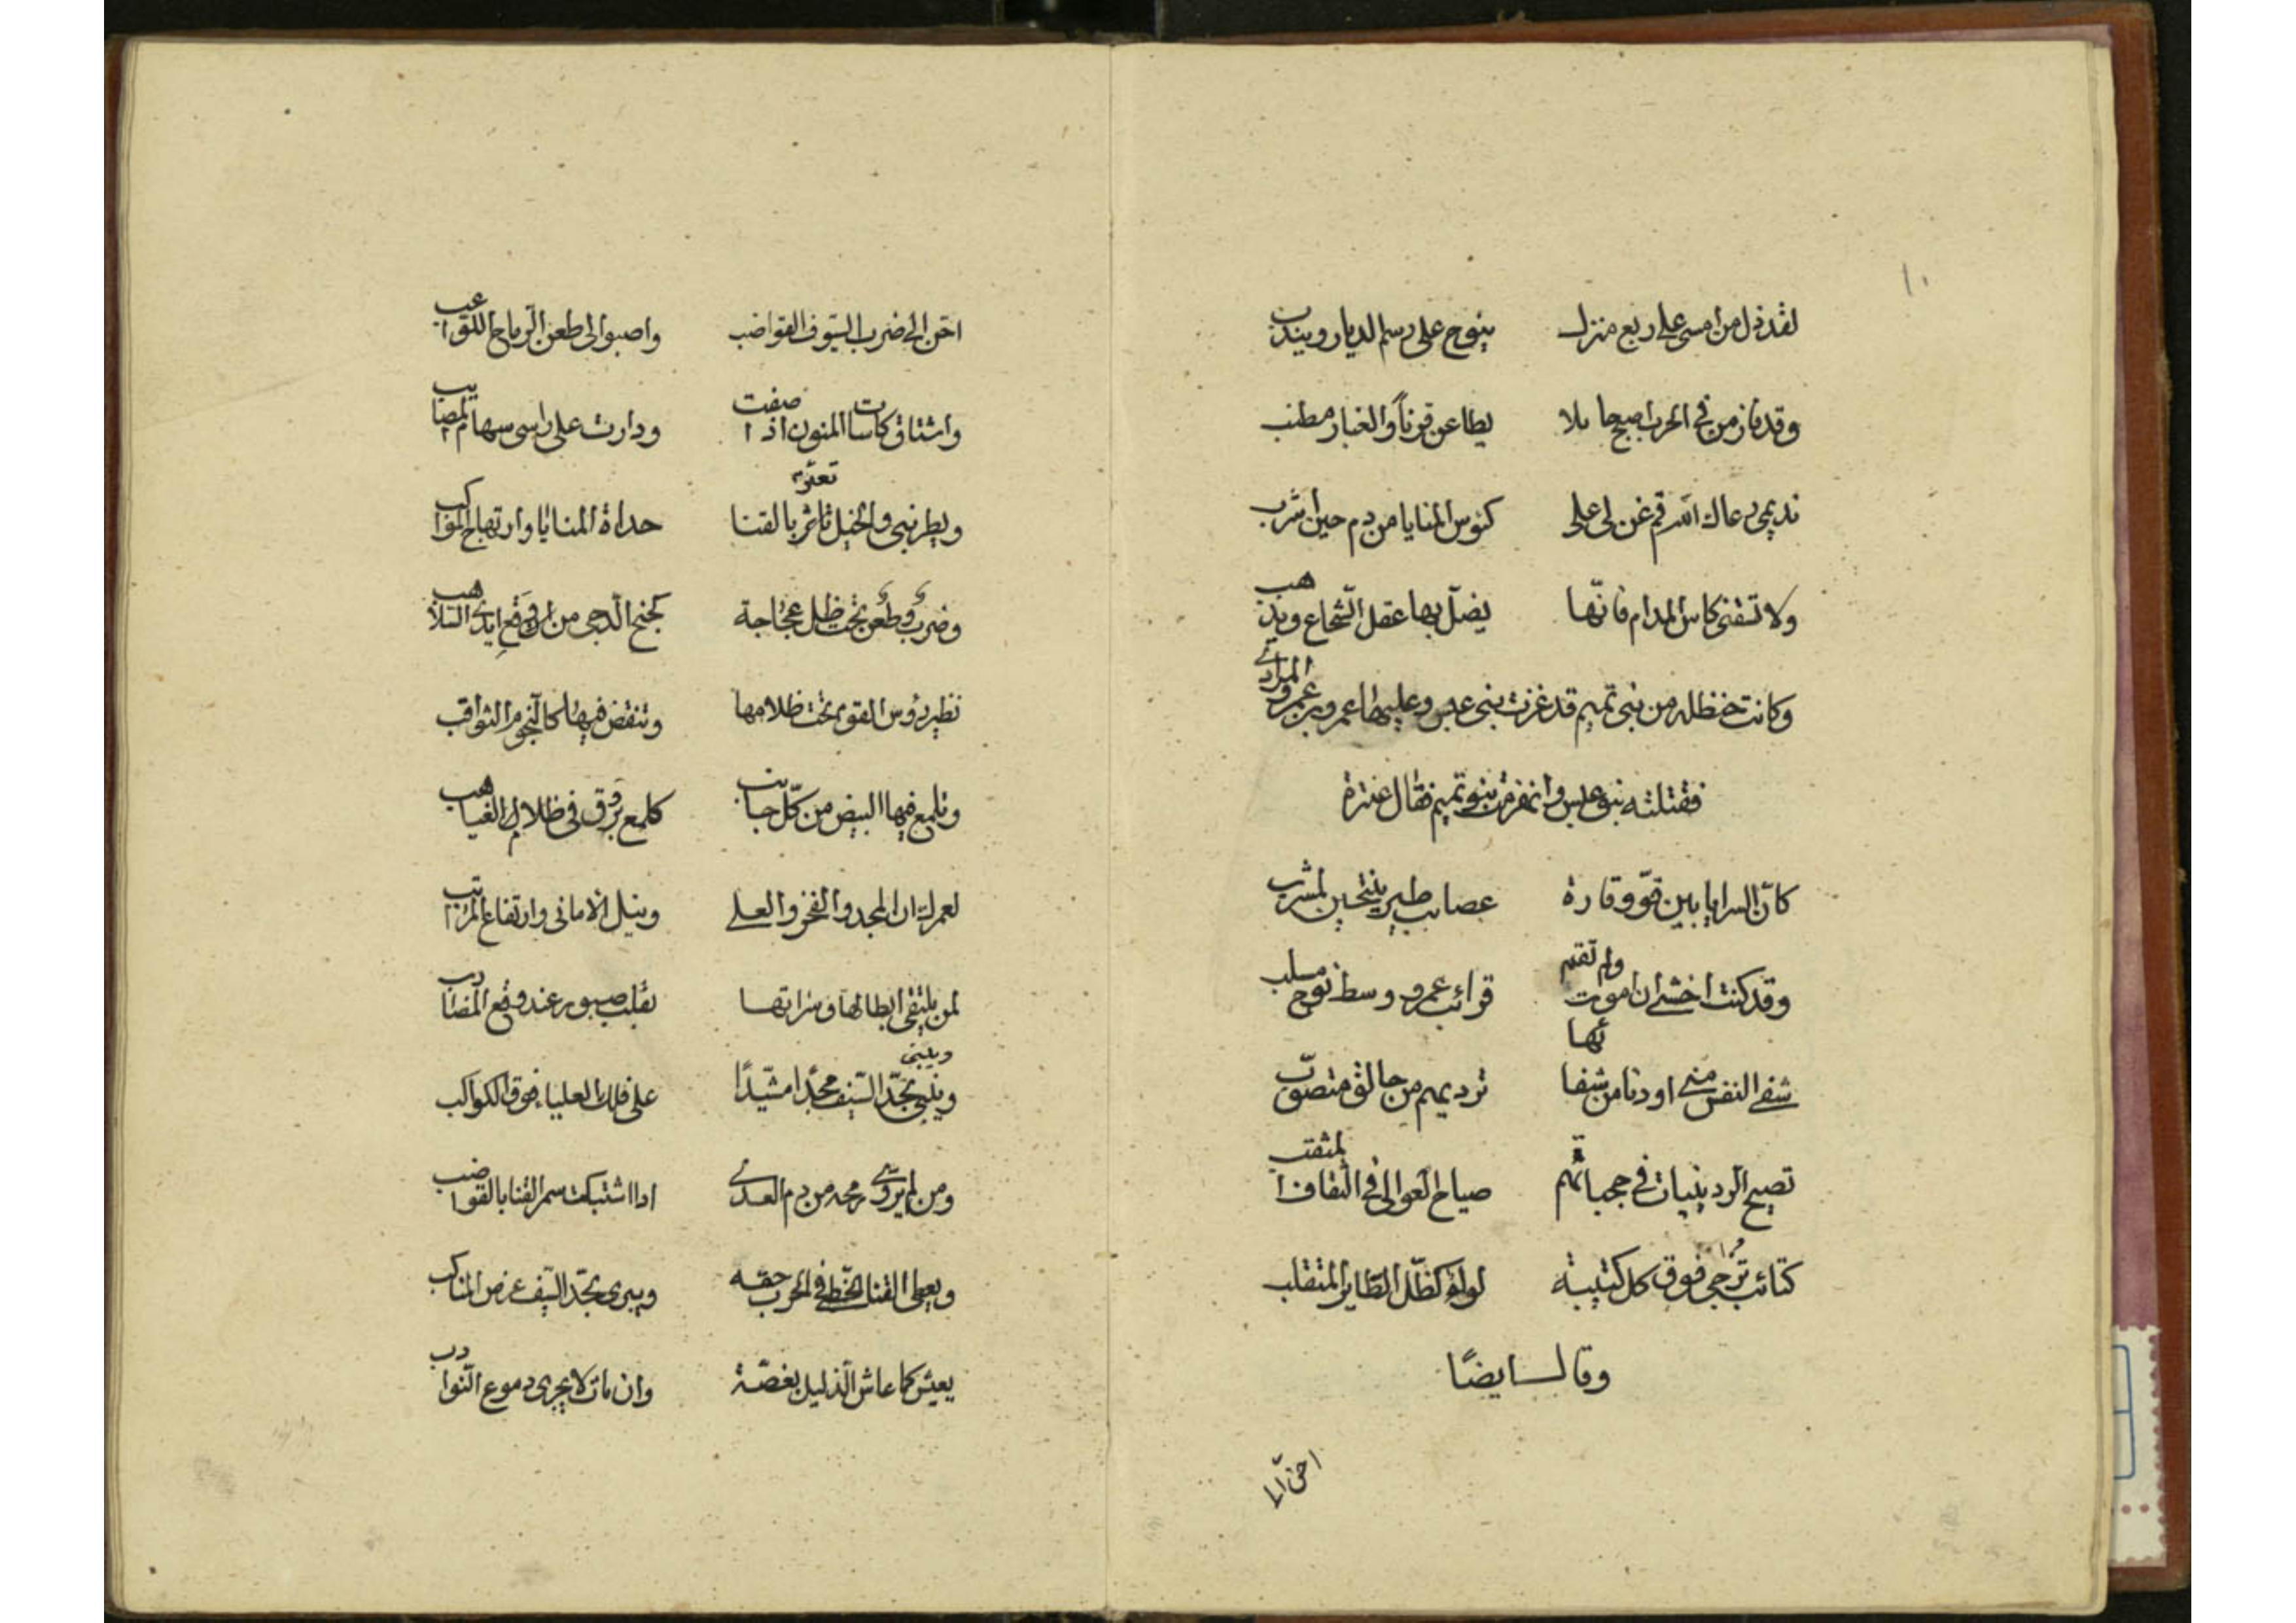 ١٠
لقد ذل من امسى على ربع منزل ينوح على رسم الديار ويندب
وقد فاز من في الحرب اصبح جايلا يطاعن قرناً والغبار مطنب
نديمى رعاك الله قم غن لى على كئوس المنايا من دم حين اشرب
ولا تسقنى كاس المدام فانّها يضلّ بها عقل الشّجاع ويذهب
وكانت حنظله من بنى تميم قد غزت بنى عبس وعليها عمرو بن عمرو
فقتلته بنو عبس وانهزمت بنو تميم فقال عنترة
كانّ السرايا بين قوّ وقارة عصايب طير ينتحين لمشرب
وقد كنت اخشى ان اموت ولم تقم قرائب عمرو وسط نوح مسلب
شفى النفس منى او دنا من شفائها ترديهم من حالق متصوّب
تصيح الردينيات في حجباتهم صياح العوالى في الثقاف المثقب
كتائب تزجى فوق كل كتيبة لواؤ كظلّ الطّاير المتقلب
وقال ايضًا
احنّ الى
احن الى ضرب السيوف القواضب واصبوا الى طعن الرّماح اللواعب
واشتاق كاسات المنون اذا صفت ودارت على راسى سهام المصايب
ويطربنى والخيل تعثر بالقنا حداة المنايا وارتهاج المواكب
وضربٌ وطعن تحت ظل عجاجة كجنح الدجى من وقع ايدى السلاهب
تطير رؤس القوم تحت ظلامها وتنقض فيها كالنّجوم الثواقب
وتلمع فيها البيض من كلّ جانب كلمع بروق فى ظلام الغياهب
لعمرك ان المجد والفخر والعلى ونيل الامانى وارتفاع المراتب
لمن يلتقى ابطالها وسراتها بقلب صبور عند وقع المضارب
ويبنى بحدّ السّيف مجدًا مشيّدًا على فلك العلياء فوق الكواكب
ومن لم يروّى رمحه من دم العدى اذا اشتبكت سمر القنا بالقواضب
ويعطى القنا الخطى فى الحرب حقه ويبرى بحدّ السّيف عرض المناكب
يعيش كما عاش الذليل بغصّة وان مات لا يجرى دموع النوادب